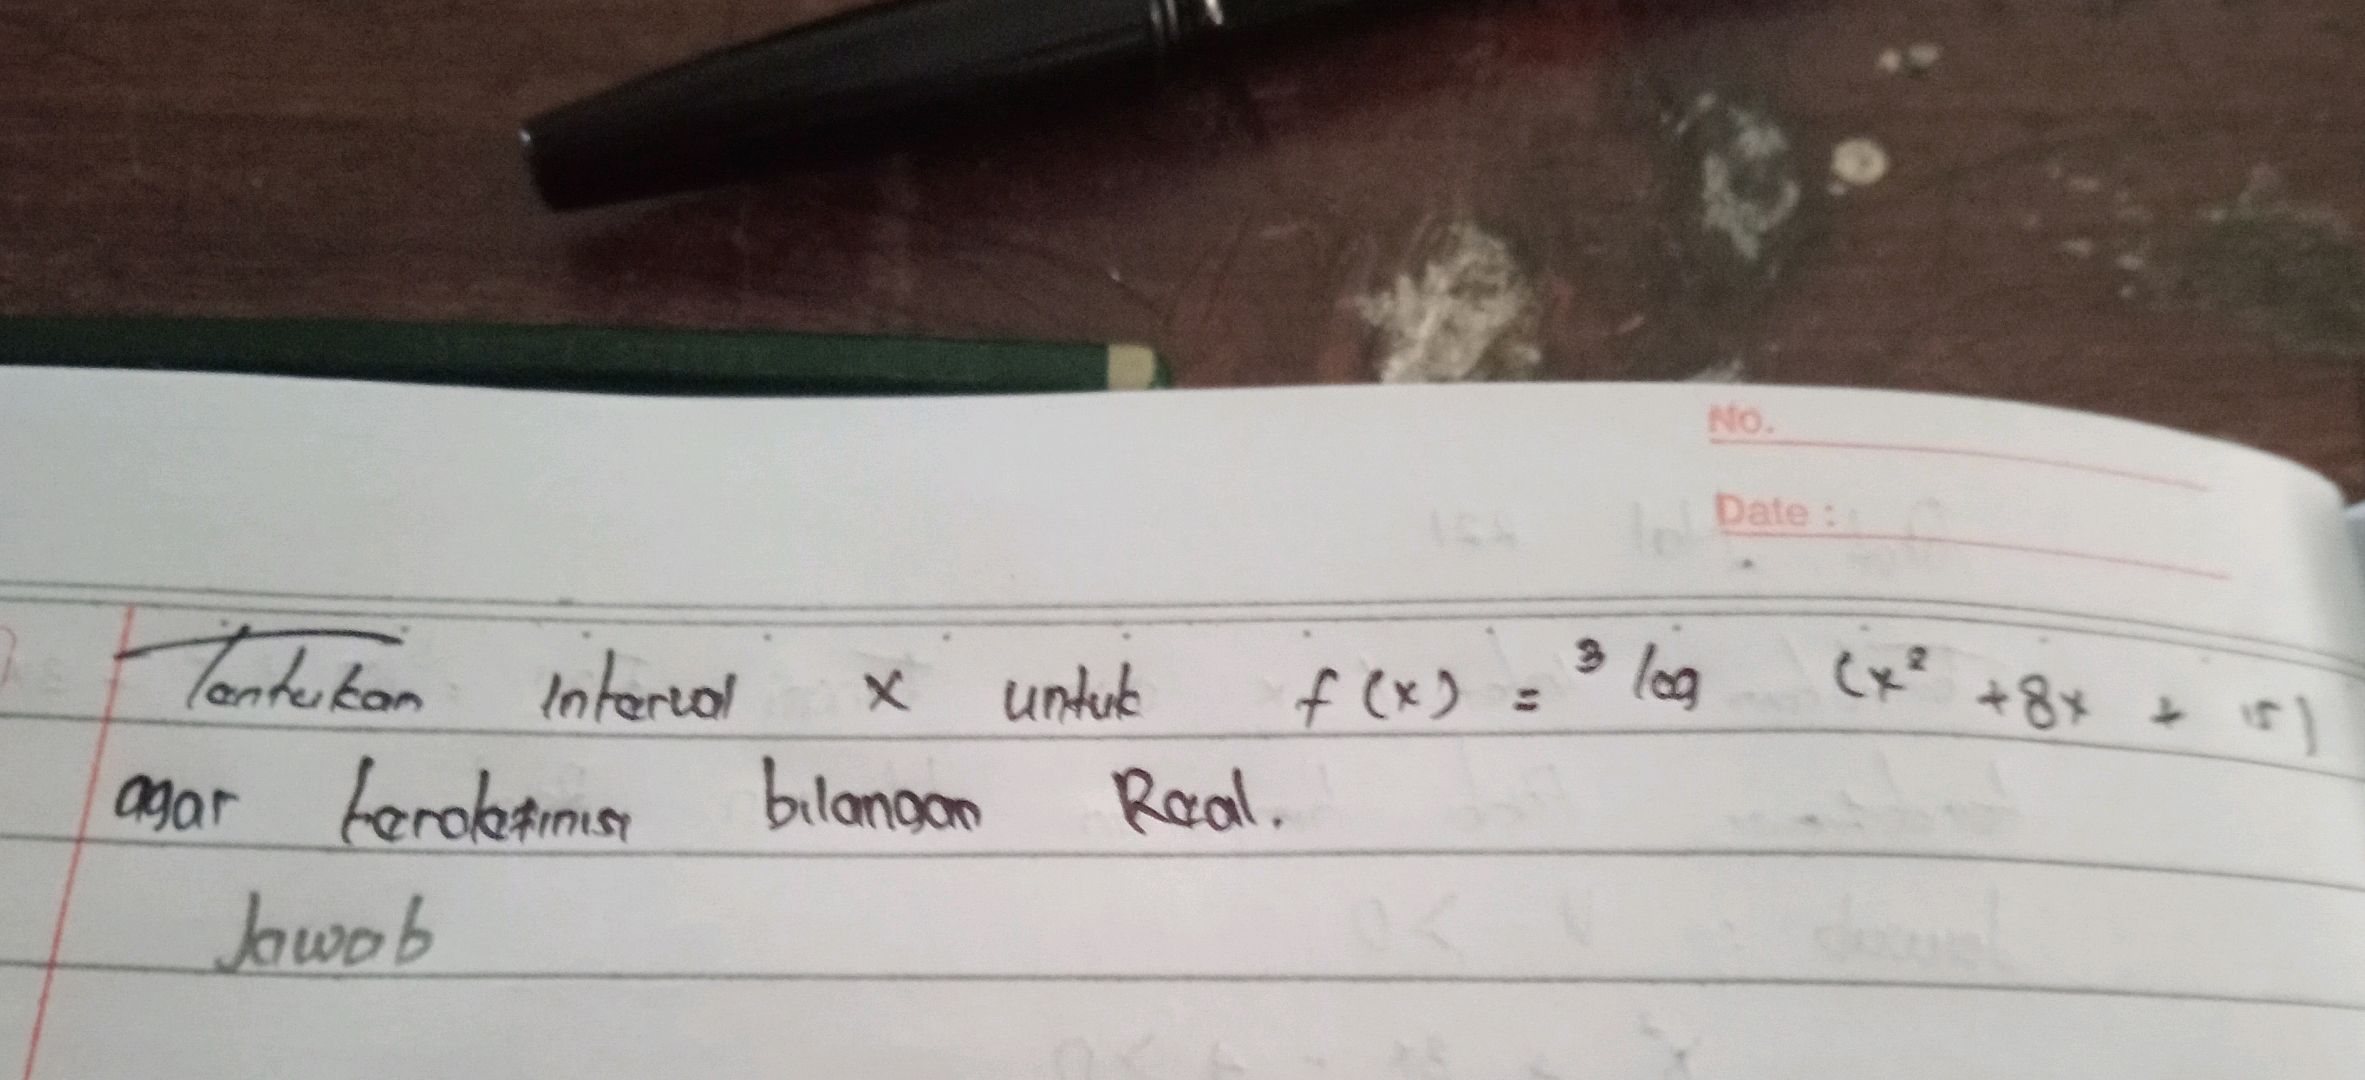 No.
Date :
Tentukan Interval x untuk f (x) = ³ log (x² + 8x + 15)
agar terdefinisi bilangan Real.
Jawab